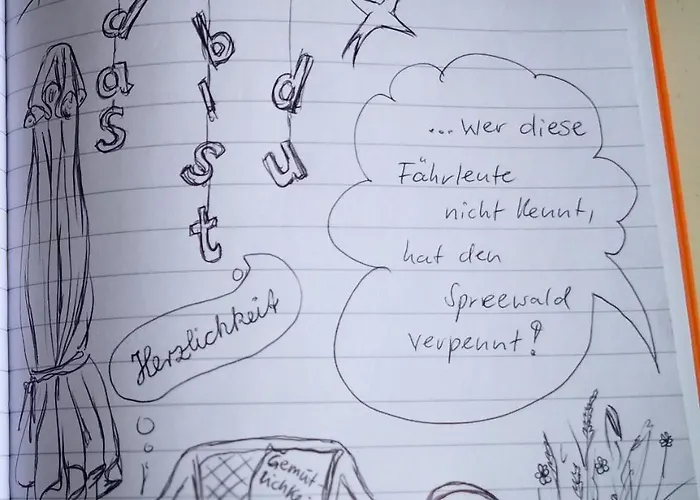 das
bist
du
...wer diese
Fährleute
nicht kennt,
hat den
Spreewald
verpennt!
Herzlichkeit
Gemüt
lichkei